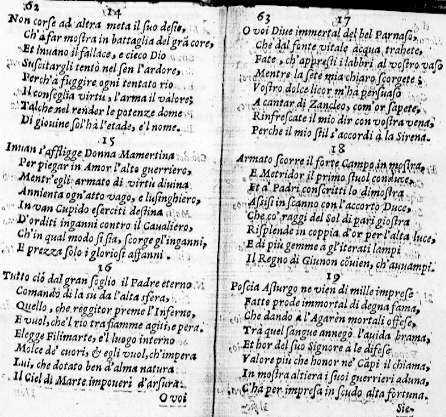 62
14
Non corse ad altra meta il suo desio,
Ch'à far mostra in battaglia del grã core,
Et inuano il fallace, e cieco Dio
Suscitargli tentò nel sen l'ardore,
Perch'à fuggire ogni tentato rio
Il conseglia virtù, l'arma il valore;
Talche nel render le potenze dome
Di giouine sol hà l'etade, e'l nome.
15
Inuan s'affligge Donna Mamertina
Per piegar in Amor l'alto guerriero,
Mentr'egli armato di virtù diuina
Annienta ogn'atto vago, e lusinghiero,
In van Cupido eserciti destina
D'orditi inganni contro il Caualiero,
Ch'in qual modo si sia, scorge gl'inganni,
E prezza solo i gloriosi affanni.
16
Tutto ciò dal gran soglio il Padre eterno
Comando di la sù da l'alta sfera,
Quello, che reggitor preme l'Inferno,
E vuol, che'l rio trà fiamme agiti, e pera.
Elegge Filimarte, e'l luogo interno
Molce de' cuori, & egli vuol, ch'impera
Lui, che dotato ben d'alma natura
Il Ciel di Marte impouerì d'arsura.
O voi
63
17
O voi Diue immortal del bel Parnaso,
Che dal fonte vitale acqua trahete,
Fate, ch'appresti i labbri al vostro vaso
Mentre la sete mia chiaro scorgete;
Vostro dolce licor m'hà persuaso
A cantar di Zancleo, com'or sapete,
Rinfrescate il mio dir con vostra vena,
Perche il mio stil s'accordi à la Sirena.
18
Armato scorre il forte Campo in mostra
E Metridor il primo stuol conduce,
Et a' Padri conscritti lo dimostra
Assisi in scanno con l'accorto Duce,
Che co' raggi del Sol di pari giostra
Risplende in coppia d'or per l'alta luce,
E di più gemme a gl'iterati lampi
Il Regno di Giunon cõuien, ch'auuampi.
19
Poscia Asturgo ne vien di mille imprese
Fatte prode immortal di degna fama,
Che dando à l'Agarèn mortali offese,
Trà quel sangue annegò l'auida brama,
Et hor del suo Signore à le difese
Valore più che honor ne' Càpi il chiama,
In mostra altiera i suoi guerrieri aduna,
C'hà per impresa in scudo alta fortuna.
Sie-